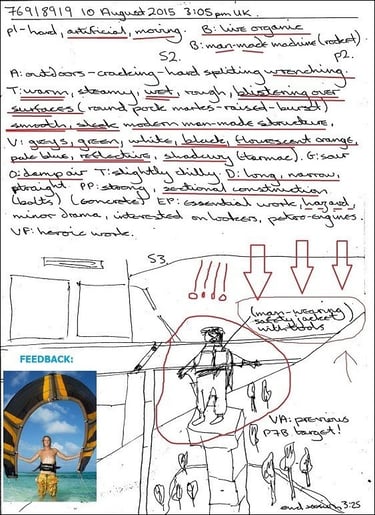 769/8919 10 August 2015 3:05pm UK.
P1-hard, artificial, moving. B: live organic
B: man-made machine (rocket)
S2. P2.
A: outdoors-cracking-hard spliting wrenching.
T: warm, steamy, wet, rough, blistering over
surfaces (round pock marks-raised-burst)
smooth, sleek modern man-made structure,
V: greys, green, white, black, flourescent orange,
pale blue, reflective, shadowy (tarmac). G: sour
O: damp air T: slightly chilly D: long, narrow,
straight PP: strong, sectional construction
(bolts) (concrete) EP: essential work, hazard,
minor drama, interested onlookers, petro-engines.
VF: heroic work.
S3.
(man-wearing
safety jacket
with tools
FEEDBACK:
VA: previous
P7B target!
end session 3:25